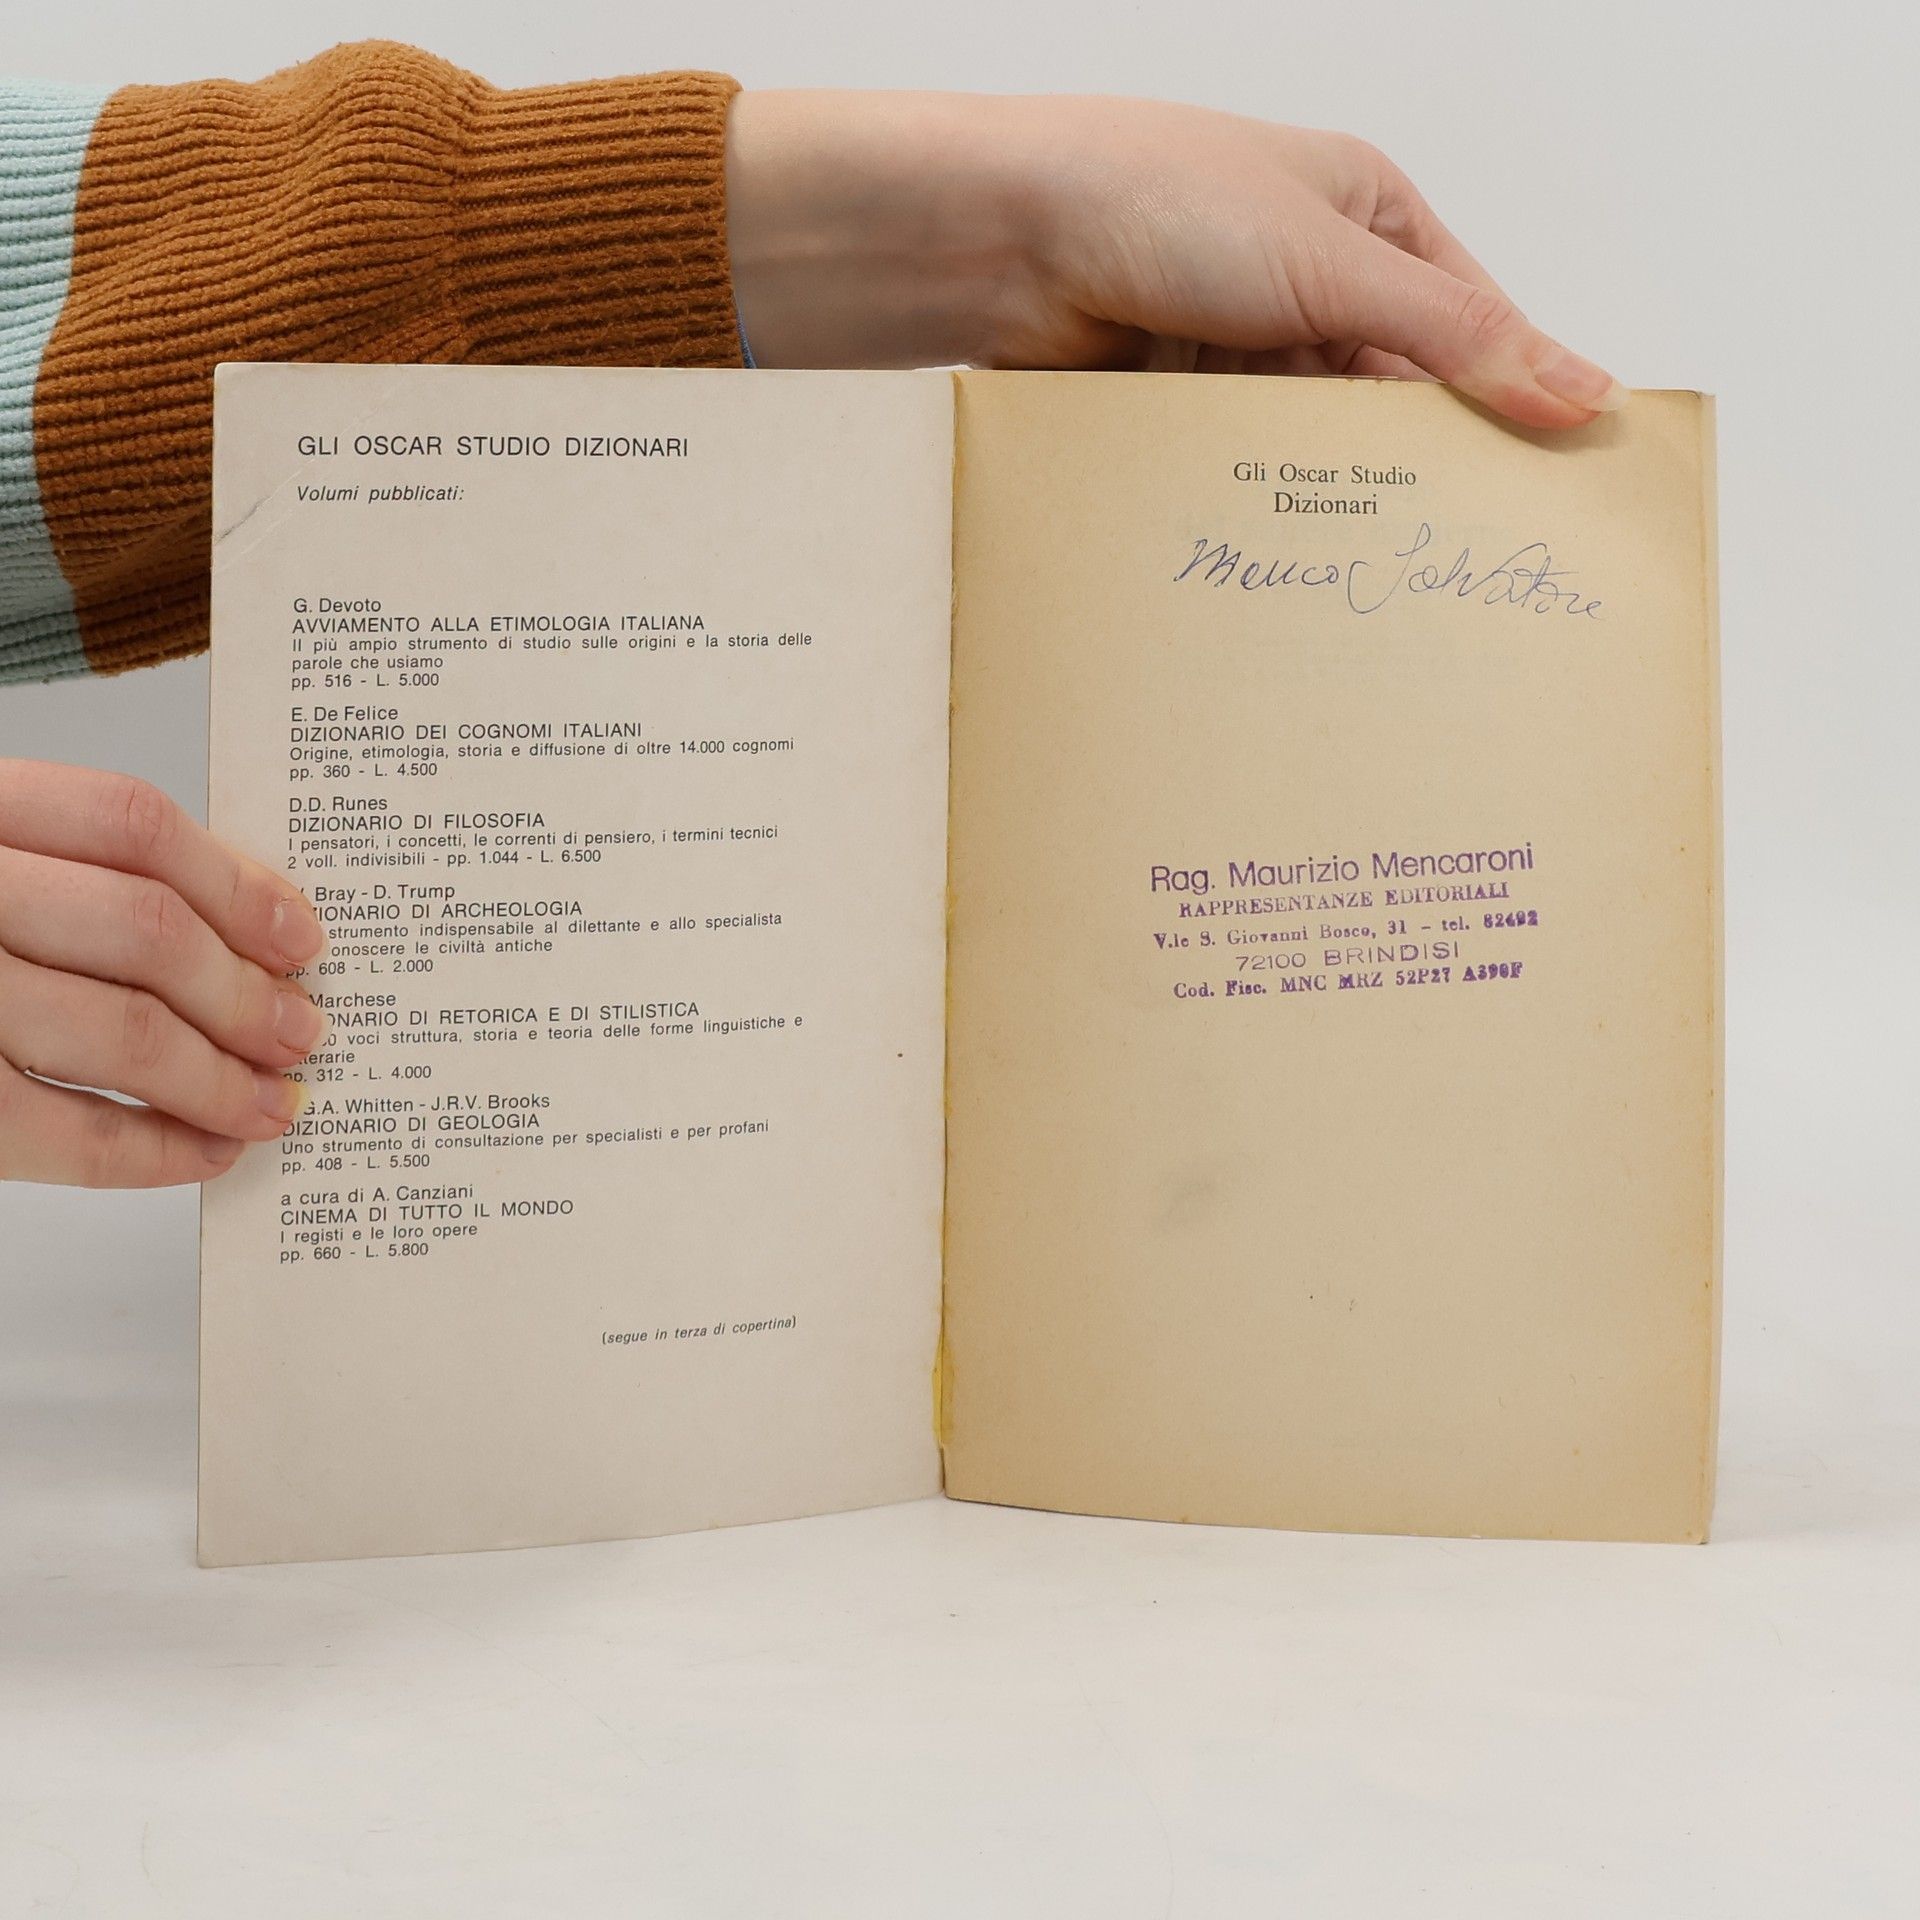 GLI OSCAR STUDIO DIZIONARI
Volumi pubblicati:
G. Devoto
AVVIAMENTO ALLA ETIMOLOGIA ITALIANA
Il più ampio strumento di studio sulle origini e la storia delle
parole che usiamo
pp. 516 - L. 5.000
E. De Felice
DIZIONARIO DEI COGNOMI ITALIANI
Origine, etimologia, storia e diffusione di oltre 14.000 cognomi
pp. 360 - L. 4.500
D.D. Runes
DIZIONARIO DI FILOSOFIA
I pensatori, i concetti, le correnti di pensiero, i termini tecnici
2 voll. indivisibili - pp. 1.044 - L. 6.500
Bray - D. Trump
ZIONARIO DI ARCHEOLOGIA
strumento indispensabile al dilettante e allo specialista
onoscere le civiltà antiche
pp. 608 - L. 2.000
Marchese
ONARIO DI RETORICA E DI STILISTICA
voci struttura, storia e teoria delle forme linguistiche e
terarie
pp. 312 - L. 4.000
G.A. Whitten - J.R.V. Brooks
DIZIONARIO DI GEOLOGIA
Uno strumento di consultazione per specialisti e per profani
pp. 408 - L. 5.500
a cura di A. Canziani
CINEMA DI TUTTO IL MONDO
I registi e le loro opere
pp. 660 - L. 5.800
(segue in terza di copertina)
Gli Oscar Studio
Dizionari
Salvatore
Rag. Maurizio Mencaroni
RAPPRESENTANZE EDITORIALI
V.le S. Giovanni Bosco, 31 - tel. 82492
72100 BRINDISI
Cod. Fisc. MNC MRZ 52P27 A390F